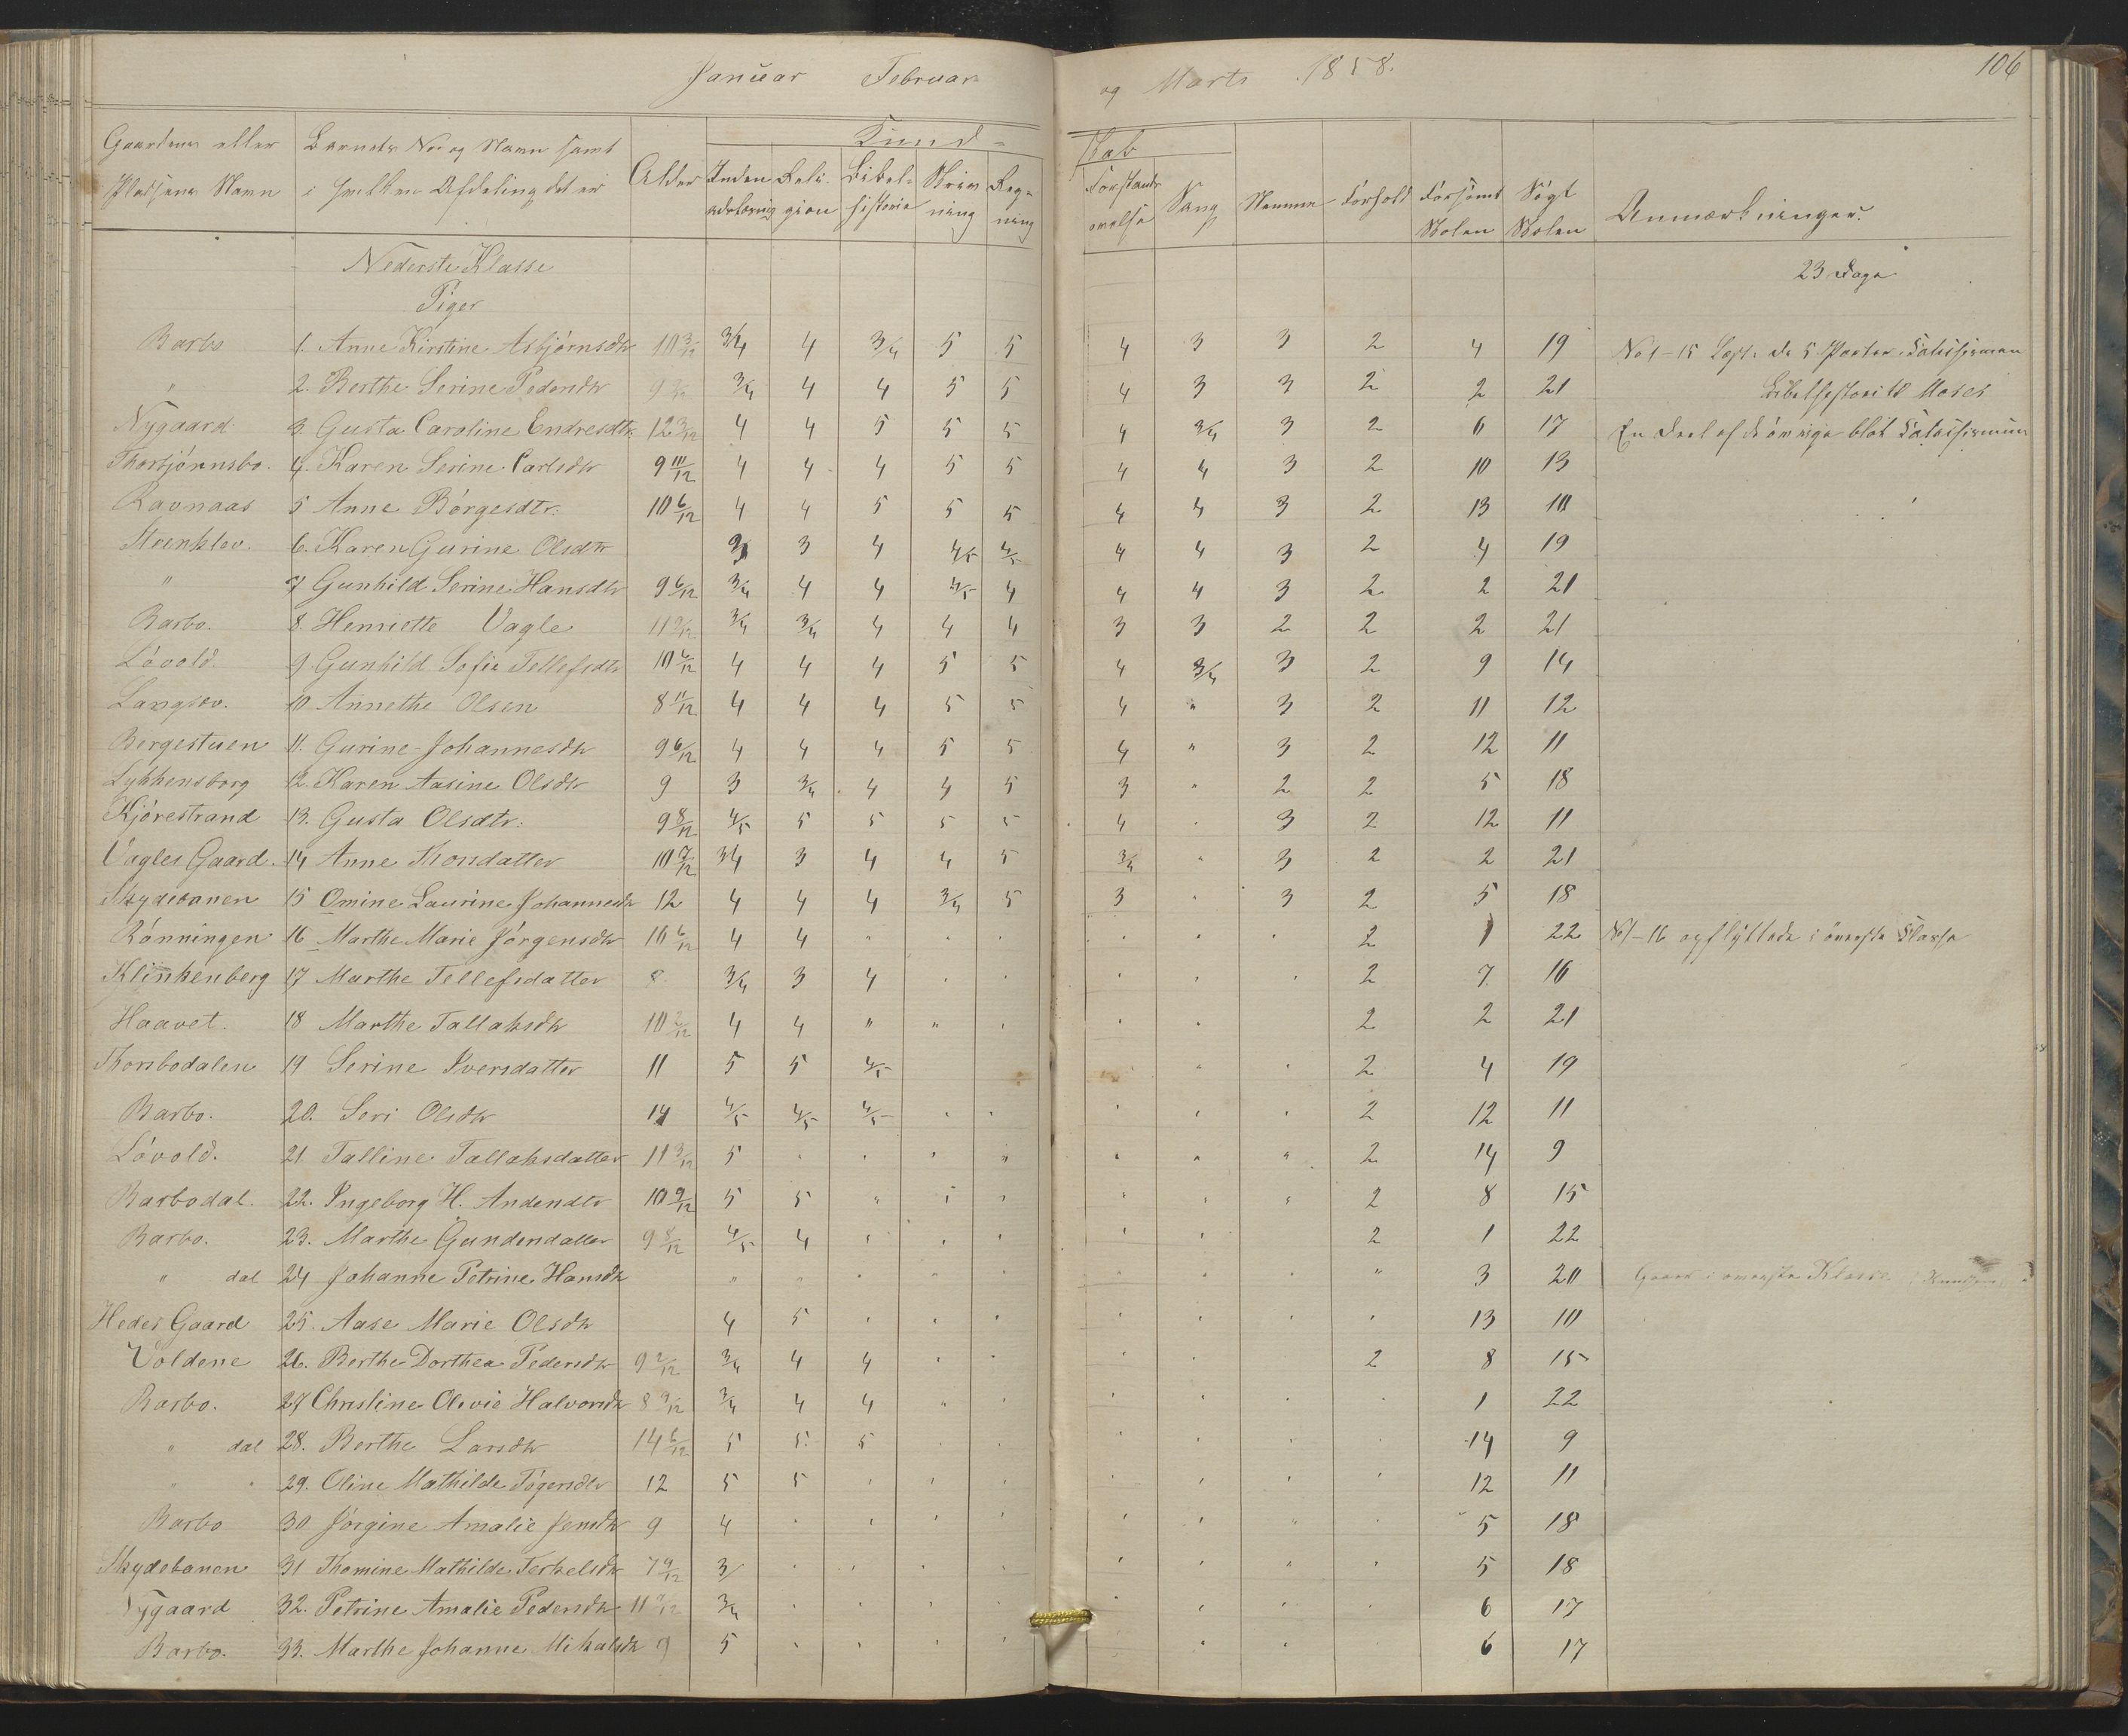 Januar Februar og Marts 1858. 106
Gaardens eller Pladsens Navn | Barnets No og Navn samt i hvilken Afdeling det er | Alder | Kund-skab | Nemme | Forhold | Forsømt Skolen | Søgt Skolen | Anmærkninger.
Inden adslæsning | Religion | Bibelhistorie | Skrivning | Regning | Forstands øvelse | Sang
Nederste Klasse 23 Dage
Piger
Barbo 1. Anne Kirstine Asbjørnsdtr 10 3/12 3/4 4 3/4 5 5 4 3 3 2 4 19 No 1-15 Læst de 5 Parter Katechismen
" 2. Berthe Serine Pedersdtr 9 3/4 4 4 5 5 4 3 3 2 2 21 Bibelhistori til Moses
Nygaard 3. Gusta Caroline Endresdtr: 12 3/12 4 4 5 5 5 4 3/4 3 2 6 17 En Deel af de øvrige blot Katechismum
Thorbjørnsbo. 4. Karen Serine Carlsdtr 9 11/12 4 4 4 5 5 4 4 3 2 10 13
Ravnaas 5 Anne Børgesdtr: 10 6/12 4 4 5 5 5 4 4 3 2 13 10
Steenklev. 6. Karen Gurine Olsdtr 3 3 4 4/5 4/5 4 4 3 2 4 19
" 7 Gunhild Serine Hansdtr 9 6/12 3/4 4 4 4/5 4 4 4 3 2 2 21
Barbo. 8. Henriette Vagle 11 9/12 3/4 3/4 4 4 4 3 3 2 2 2 21
Løvold 9 Gunhild Sofie Tellefsdtr 10 6/12 4 4 4 5 5 4 3/4 3 2 9 14
Langsev. 10 Annethe Olsen 8 11/12 4 4 4 5 5 4 " 3 2 11 12
Bergestuen 11. Gurine Johannesdtr 9 6/12 4 4 4 5 5 4 " 3 2 12 11
Lykkensborg 12. Karen Aasine Olsdtr 9 3 3/4 4 4 5 3 " 2 2 5 18
Kjørestrand 13. Gusta Olsdtr: 9 8/12 4/5 5 5 5 5 4 " 3 2 12 11
Vagles Gaard. 14 Anne Thordatter 10 7/12 3/4 3 4 4 5 3/4 " 3 2 2 21
Skydebanen 15 Omine Laurine Johannesdtr 12 4 4 4 3/4 5 3 " 3 2 5 18
Rønningen 16 Marthe Marie Jørgensdtr 10 6/12 4 4 " " " " " " 2 1 22 No 1-16 opflyttede i øverste Klasse
Klinkenberg 17 Marthe Tellefsdatter 8 3/4 3 4 " " " " " 2 7 16
Haavet. 18 Marthe Tallaksdtr 10 2/12 4 4 " " " " " 2 2 21
Thorsbodalen 19 Serine Iversdatter 11 5 5 4/5 " " " 2 4 19
Barbo. 20. Seri Olsdtr 14 4/5 4/5 4/5 " " " " " 2 12 11
Løvold. 21. Talline Tallaksdatter 11 3/12 5 " " " " " " " 2 14 9
Barbodal. 22. Ingeborg H. Andersdtr 10 9/12 5 5 " " " " " " 2 8 15
Barbo. 23. Marthe Gundersdatter 9 8/12 4/5 4 " " " " " 2 1 22
" dal 24 Johanne Petrine Hansdtr " " " " " " " " " 3 20 i øverste Klasse
Hedes Gaard 25. Aase Marie Olsdtr 4 5 " " " " " " " 13 10
Voldene 26. Berthe Dorthea Pedersdtr 9 2/12 3/4 4 4 " " " " 2 8 15
Barbo. 27 Christine Olivie Halvorsdtr 8 9/12 3/4 4 4 " " " " " " 1 22
" dal 28. Berthe Larsdtr 14 6/12 5 5 5 " " " " " 14 9
" " 29. Oline Mathilde Tögersdtr 12 5 5 " " " " " " " 12 11
Barbo 30 Jørgine Amalie Jensdtr 9 4 " " " " " " " " 5 18
Skydebanen 31 Thomine Mathilde Terkelsdtr 7 9/12 3/ " " " " " " " " 5 18
Nygaard 32. Petrine Amalie Pedersdtr 11 3/4 " " " " " " " " 6 17
Barbo. 33. Marthe Johanne Mikalsdtr 9 5 " " " " " " " 6 17